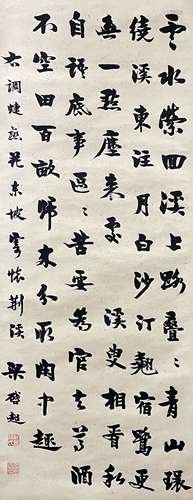 雲水縈回溪上路疊〻青山環
繞溪東注月白沙汀翹宿鷺更
無一點塵來處 溪叟相看私
自語底事區〻苦要為官去尊酒
不空田百畝歸來分取閑中趣
右調蝶戀花東坡寄懷荆溪 梁啟超